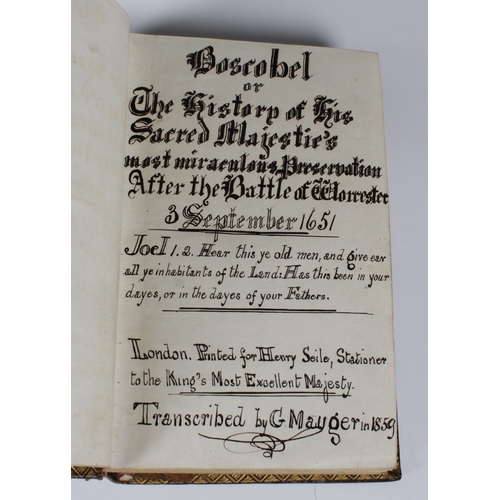 Boscobel
or
The History of His
Sacred Majestie's
most miraculous Preservation
After the Battle of Worcester
3 September 1651
Joel 1.2. Hear this ye old men, and give ear
all ye inhabitants of the Land: Has this been in your
dayes, or in the dayes of your Fathers.
London. Printed for Henry Seile, Stationer
to the King's Most Excellent Majesty.
Transcribed by G Mauger in 1859